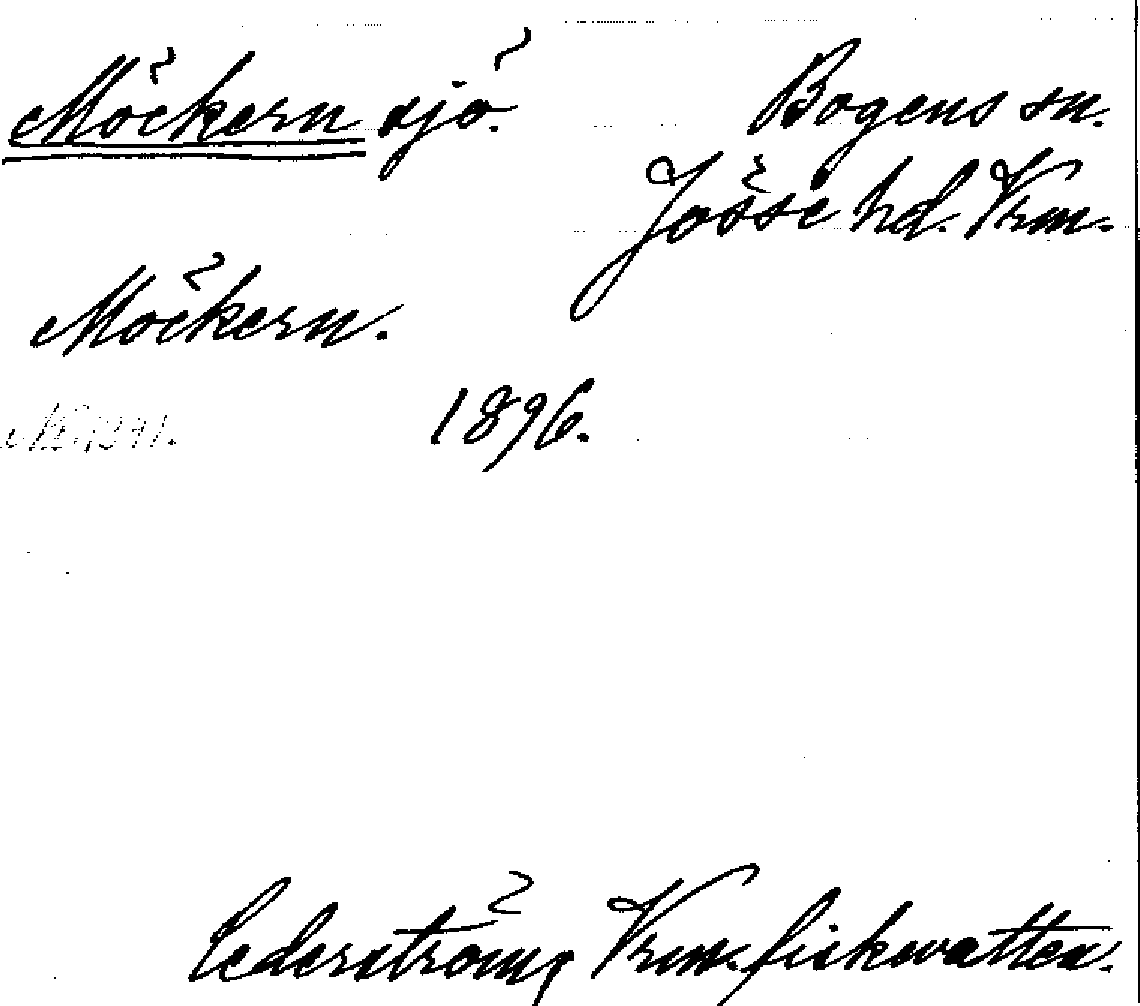 Möckern sjö.
Bogens sn.
Jösse hd. Vrm.
Möckern.
1896.
Cederström, Vrm. fiskevatten.